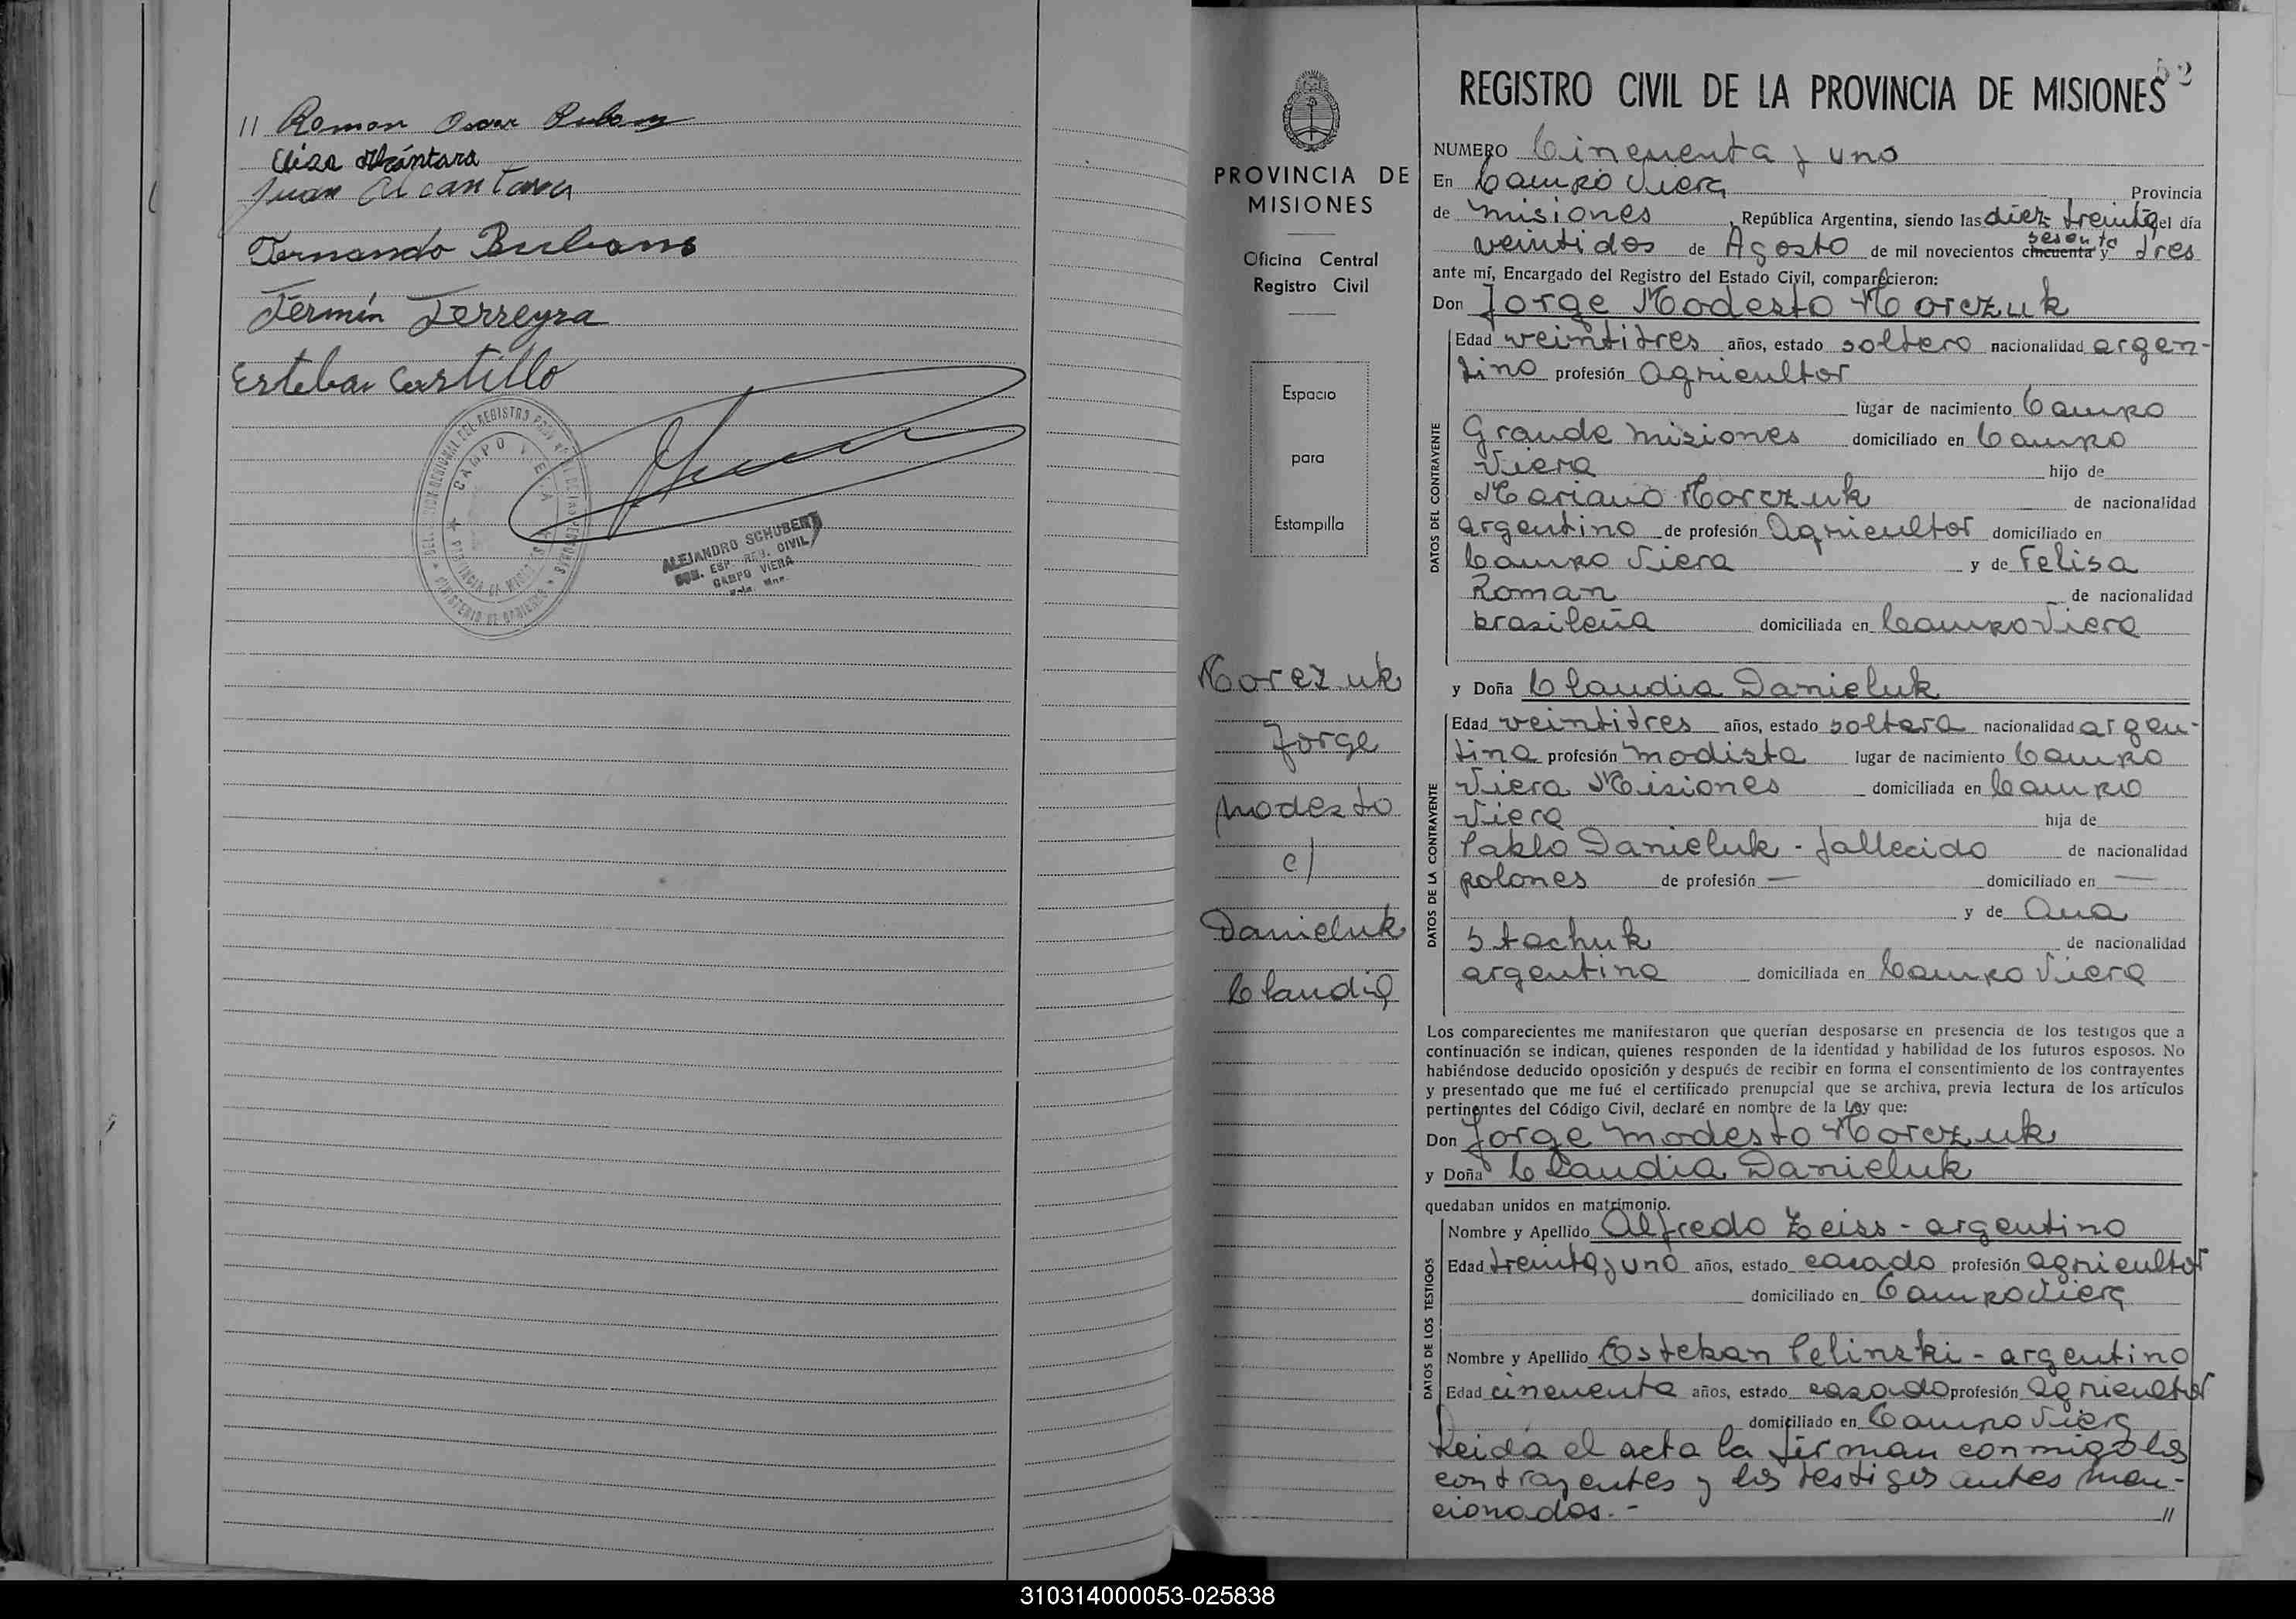 // Roman Oscar
Elisa Alcántara
Juan Alcantara
Fernando
Fermín Ferreyra
Esteban Castillo
CAMPO VIERA
ALEJANDRO SCHUBERT
ESP. REG. CIVIL
CAMPO VIERA
PROVINCIA DE
MISIONES
Oficina Central
Registro Civil
Espacio
para
Estampilla
Morczuk
Jorge
Modesto
c/
Danieluk
Claudia
52
REGISTRO CIVIL DE LA PROVINCIA DE MISIONES
NUMERO Cincuenta y uno
En Campo Viera Provincia
de Misiones, República Argentina, siendo las diez treinta del día
veintidos de Agosto de mil novecientos sesenta cincuenta y tres
ante mí, Encargado del Registro del Estado Civil, comparecieron:
Don Jorge Modesto Morczuk
DATOS DEL CONTRAYENTE
Edad veintitres años, estado soltero nacionalidad argen-
tino profesión Agricultor
lugar de nacimiento Campo
Grande Misiones domiciliado en Campo
Viera hijo de
Mariano Morczuk de nacionalidad
argentino de profesión Agricultor domiciliado en
Campo Viera y de Felisa
Roman de nacionalidad
brasileña domiciliada en Campo Viera
y Doña Claudia Danieluk
DATOS DE LA CONTRAYENTE
Edad veintitres años, estado soltera nacionalidad argen-
tina profesión modista lugar de nacimiento Campo
Viera Misiones domiciliada en Campo
Viera hija de
Pablo Danieluk - fallecido de nacionalidad
polones de profesión — domiciliado en —
y de Ana
Stachuk de nacionalidad
argentina domiciliada en Campo Viera
Los comparecientes me manifestaron que querían desposarse en presencia de los testigos que a
continuación se indican, quienes responden de la identidad y habilidad de los futuros esposos. No
habiéndose deducido oposición y después de recibir en forma el consentimiento de los contrayentes
y presentado que me fué el certificado prenupcial que se archiva, previa lectura de los artículos
pertinentes del Código Civil, declaré en nombre de la Ley que:
Don Jorge Modesto Morczuk
y Doña Claudia Danieluk
quedaban unidos en matrimonio.
DATOS DE LOS TESTIGOS
Nombre y Apellido Alfredo Zeiss - argentino
Edad treinta y uno años, estado casado profesión agricultor
domiciliado en Campo Viera
Nombre y Apellido Esteban Pelinski - argentino
Edad cincuenta años, estado casado profesión agricultor
domiciliado en Campo Viera
Leida el acta la firman conmigo los
contrayentes y los testigos antes men-
cionados.- //
310314000053-025838